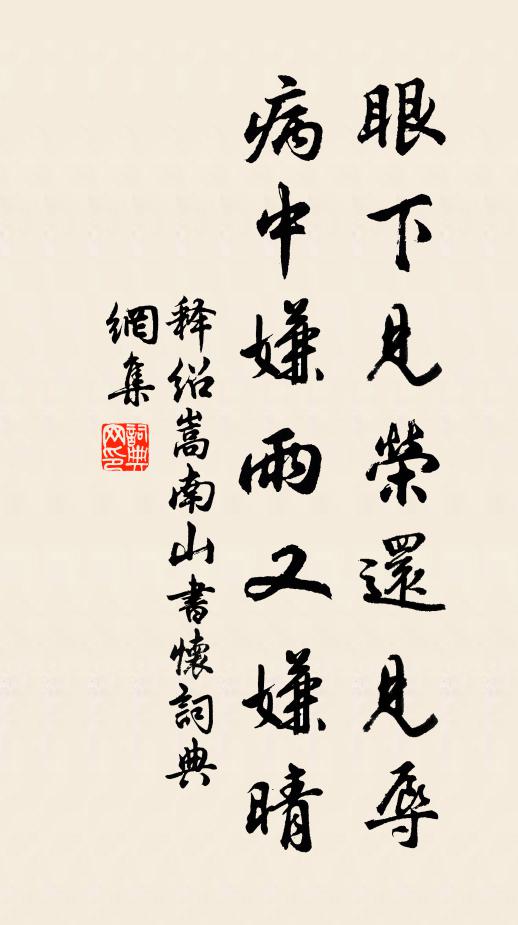 眼下見榮還見辱
病中嫌雨又嫌晴
释紹嵩南山書懷詞典
網集
詞典
网印